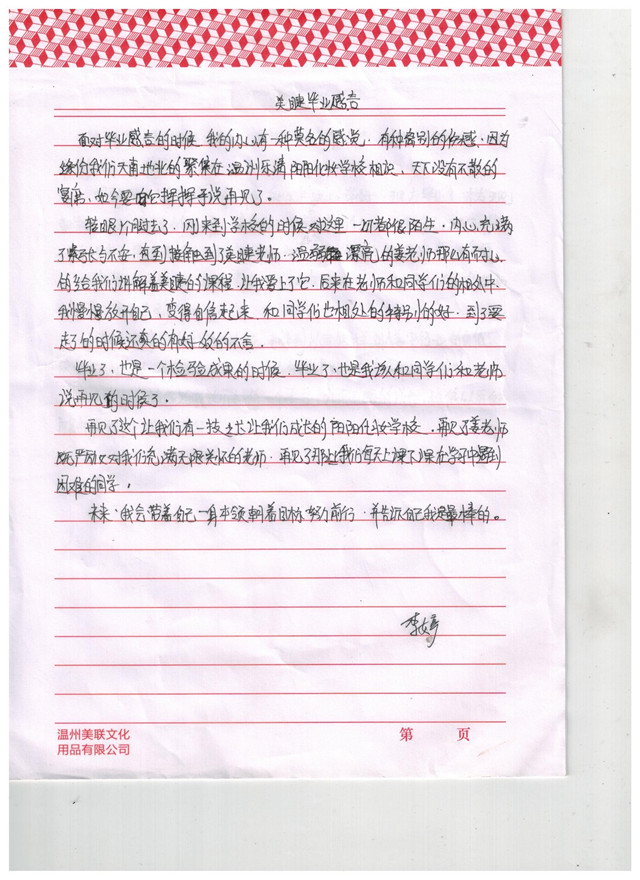 美睫毕业感言
面对毕业感言的时候 我的内心有一种莫名的感觉，有种离别的伤感，因为
缘份我们天南地北的聚集在温州乐清阳阳化妆学校相识，天下没有不散的
宴席，如今要和它挥挥手说再见了。
转眼个月过去了，刚来到学校的时候 对这里一切都很陌生，内心充满
了紧张与不安，直到接触到了美睫老师，温柔漂亮的姜老师那么有耐心
的给我们讲解着美睫的课程，让我爱上了它，后来在老师和同学们的相处中，
我慢慢放开自己，变得自信起来，和同学们也相处的特别的好，到了要
走了的时候还真的有好多的不舍，
毕业了，也是一个检验成果的时候，毕业了，也是我该和同学们和老师
说再见的时候了。
再见了这个让我们有一技之长让我们成长的阳阳化妆学校，再见了姜老师
既严厉又对我们充满无限关怀的老师，再见了那些我们每天上课下课在学习中遇到
困难的同学。
未来，我会带着自己一身本领朝着目标努力前行，并告诉自己我是最棒的。
李婷
温州美联文化
用品有限公司
第 页